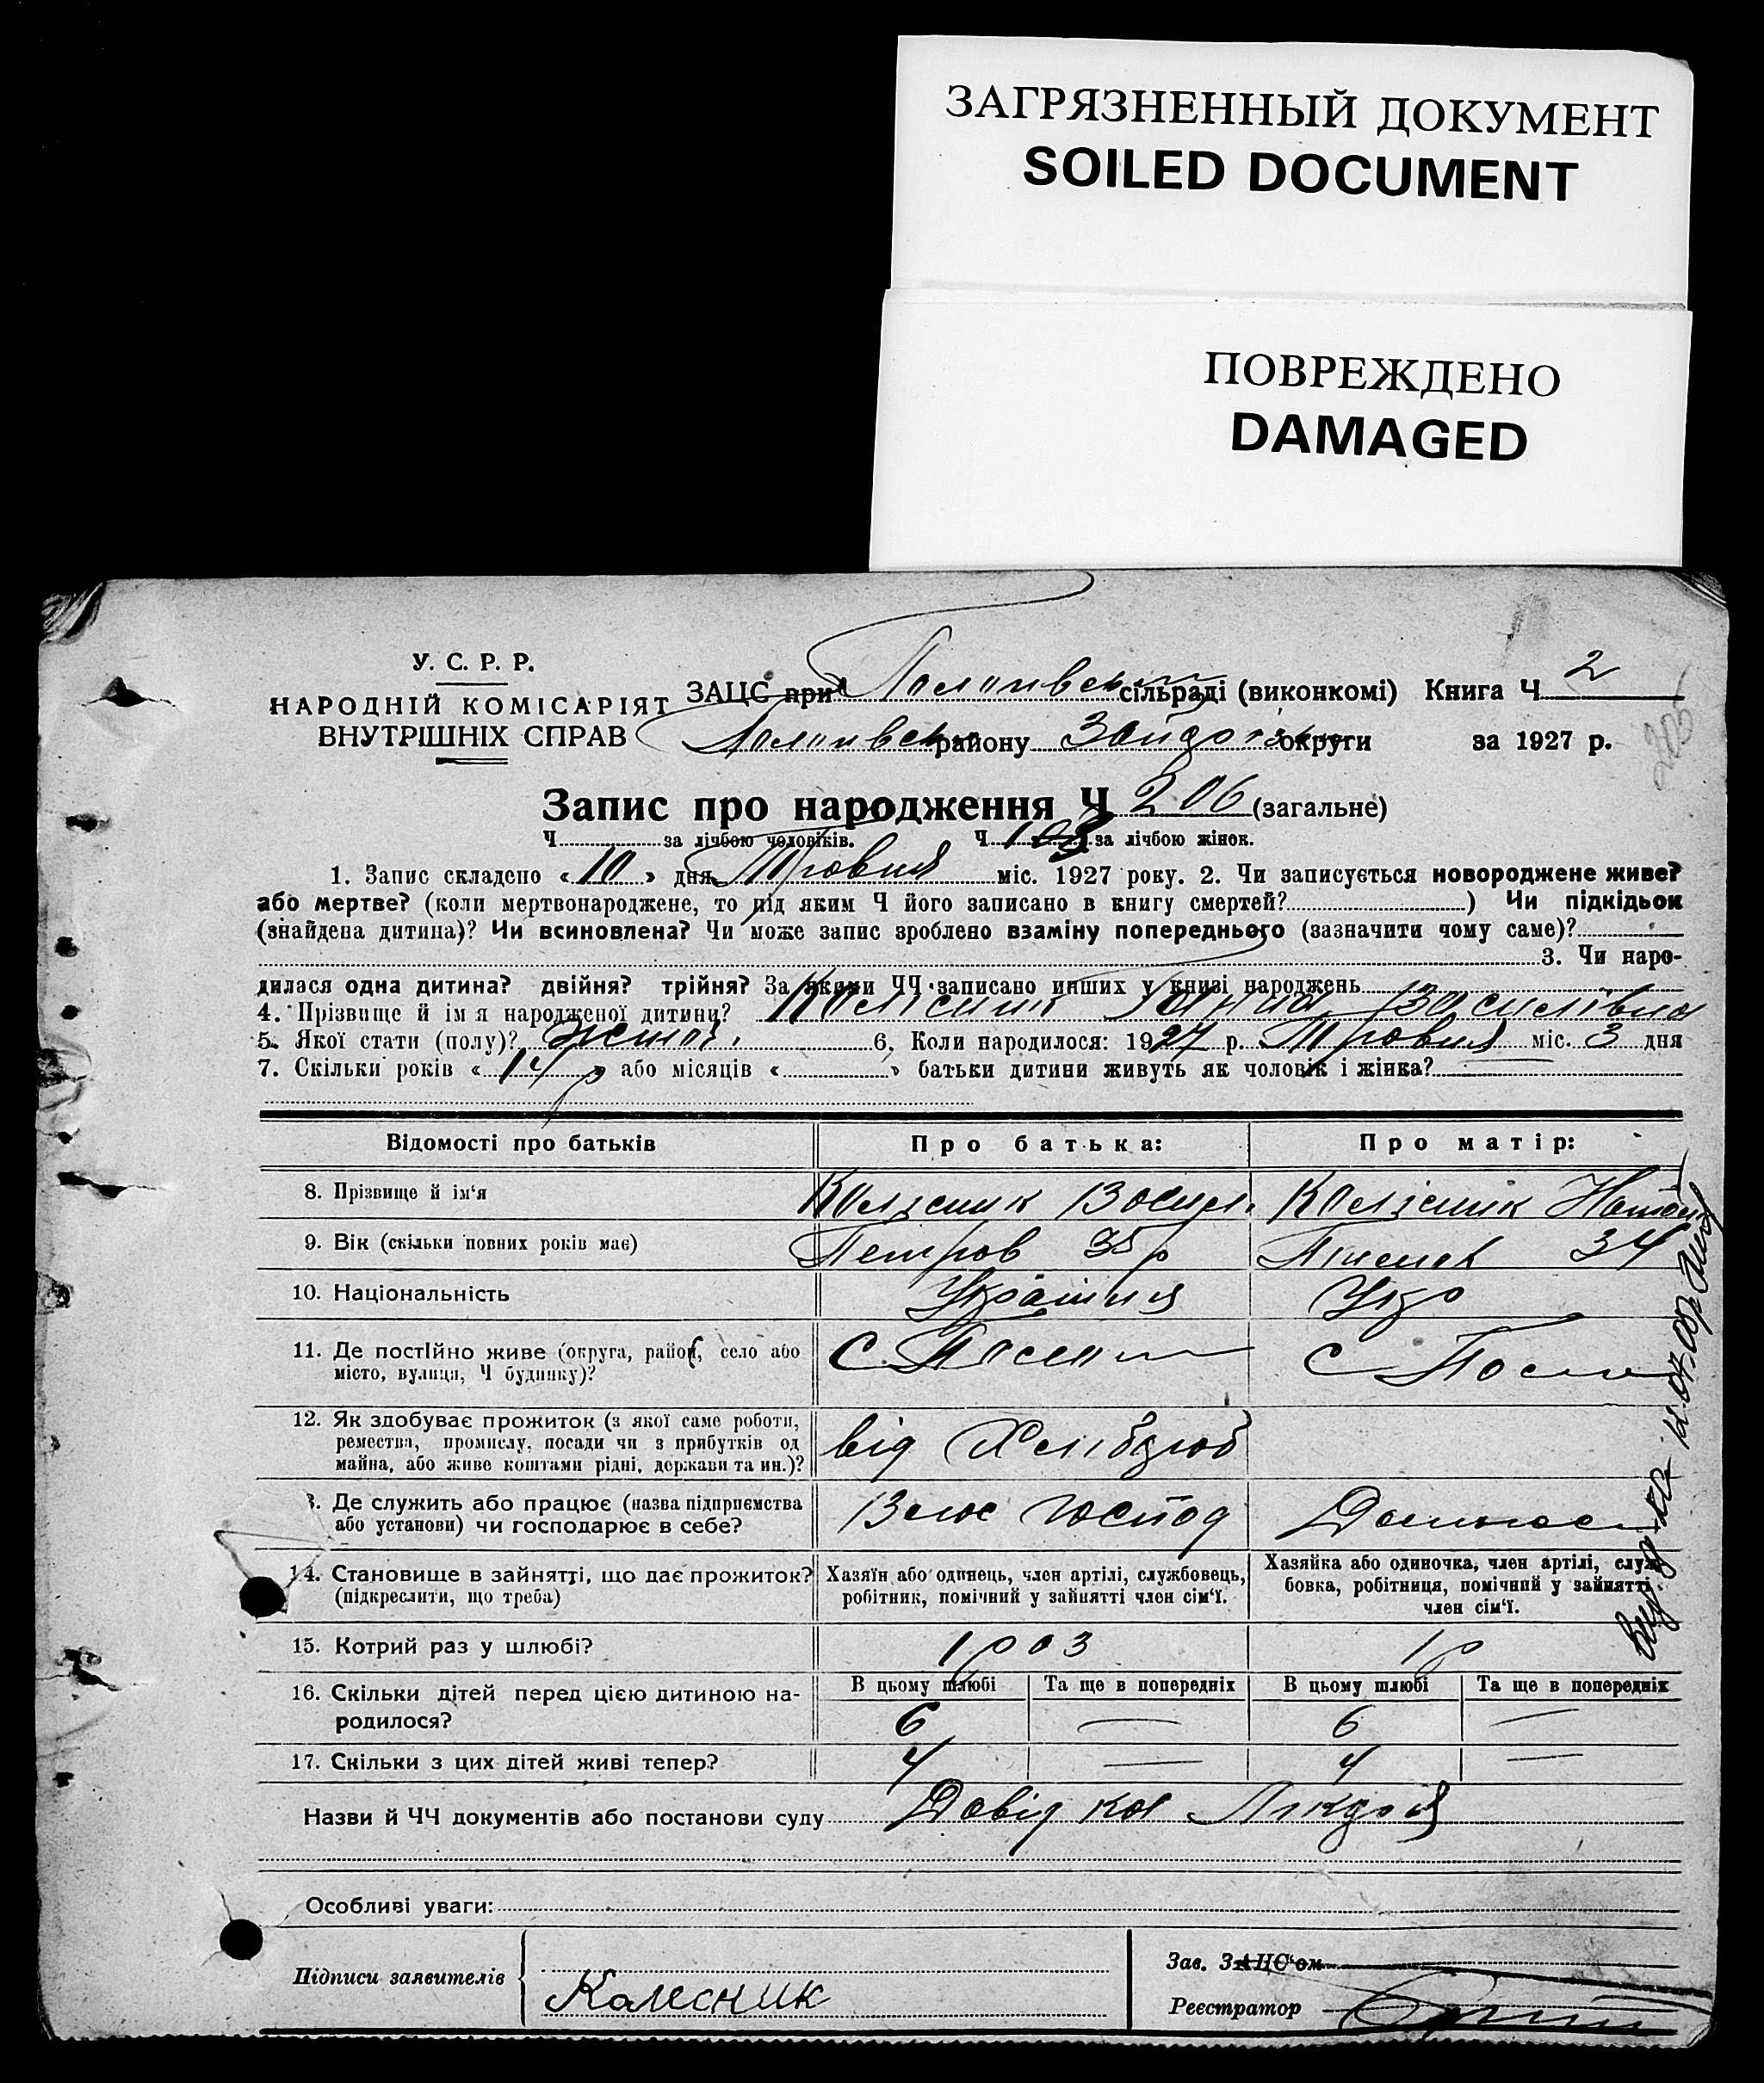 ЗАГРЯЗНЕННЫЙ ДОКУМЕНТ
SOILED DOCUMENT
ПОВРЕЖДЕНО
DAMAGED
У. С. Р. Р.
НАРОДНІЙ КОМІСАРІЯТ
ВНУТРІШНІХ СПРАВ
ЗАЦС при сільраді (виконкомі) Книга Ч 2
району округи за 1927 р.
Запис про народження Ч 206 (загальне)
Ч за лічбою чоловіків. Ч 103 за лічбою жінок.
1. Запис складено «10» дня Травня міс. 1927 року. 2. Чи записується новороджене живе?
або мертве? (коли мертвонароджене, то під яким Ч його записано в книгу смертей?) Чи підкідьок
(знайдена дитина)? Чи всиновлена? Чи може запис зроблено взаміну попереднього (зазначити чому саме)?
3. Чи наро-
дилася одна дитина? двійня? трійня? За якими ЧЧ записано инших у книзі народжень
4. Прізвище й імя народженої дитини? Колісник Ганна Василівна
5. Якої стати (полу)? 6. Коли народилося: 1927 р. Травня міс. 3 дня
7. Скільки років «14 р» або місяців « » батьки дитини живуть як чоловік і жінка? —
Відомості про батьків
Про батька:
Про матір:
8. Прізвище й ім'я Колісник Васил. Колісник
9. Вік (скільки повних років має) Петров 35 р 34
10. Національність Україниця Укр
11. Де постійно живе (округа, район, село або
місто, вулиця, Ч будинку)?
12. Як здобуває прожиток (з якої саме роботи,
ремества, промислу, посади чи з прибутків од
майна, або живе коштами рідні, держави та ин.)?
від Хлібороб
3. Де служить або працює (назва підприємства
або установи) чи господарює в себе?
Влос господ
14. Становище в зайнятті, що дає прожиток?
(підкреслити, що треба)
Хазяїн або одинець, член артілі, службовець,
робітник, помічний у зайнятті член сім'ї.
Хазяйка або одиночка, член артілі, служ-
бовка, робітниця, помічний у зайнятті
член сім'ї.
15. Котрий раз у шлюбі? 1 р
16. Скільки дітей перед цією дитиною на-
родилося?
В цьому шлюбі Та ще в попередніх В цьому шлюбі Та ще в попередніх
6 — 6 —
17. Скільки з цих дітей живі тепер? 4 — 4 —
Назви й ЧЧ документів або постанови суду Довідка
Особливі уваги:
Підписи заявителів
Колесник
Зав. ЗАЦС'ом
Реєстратор